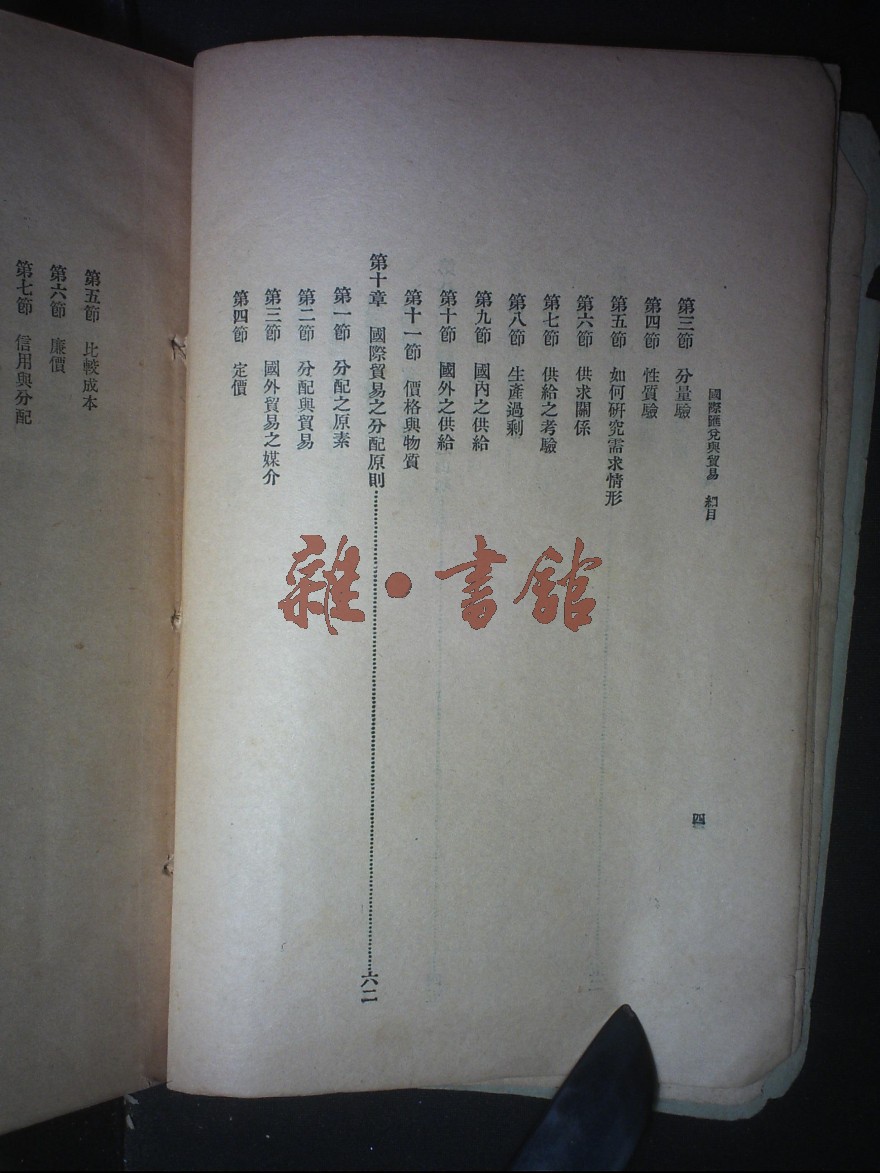 國際匯兌與貿易 細目
四
第三節 分量驗
第四節 性質驗
第五節 如何研究需求情形
第六節 供求關係
第七節 供給之考驗
第八節 生產過剩
第九節 國內之供給
第十節 國外之供給
第十一節 價格與物質
第十章 國際貿易之分配原則……六二
第一節 分配之原素
第二節 分配與貿易
第三節 國外貿易之媒介
第四節 定價
第五節 比較成本
第六節 廉價
第七節 信用與分配
雜·書館